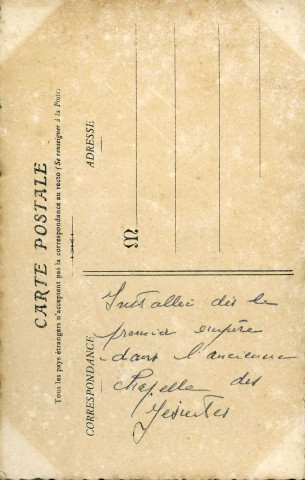 CARTE POSTALE
Tous les pays étrangers n'acceptent pas la correspondance au recto (Se renseigner à la Poste)
CORRESPONDANCE
ADRESSE
M
Installée dès le
premier empire
dans l'ancienne
chapelle des
Jésuites